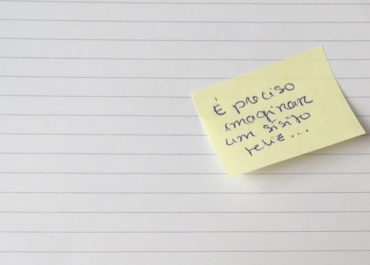 É preciso
imaginar
um sísifo
feliz...